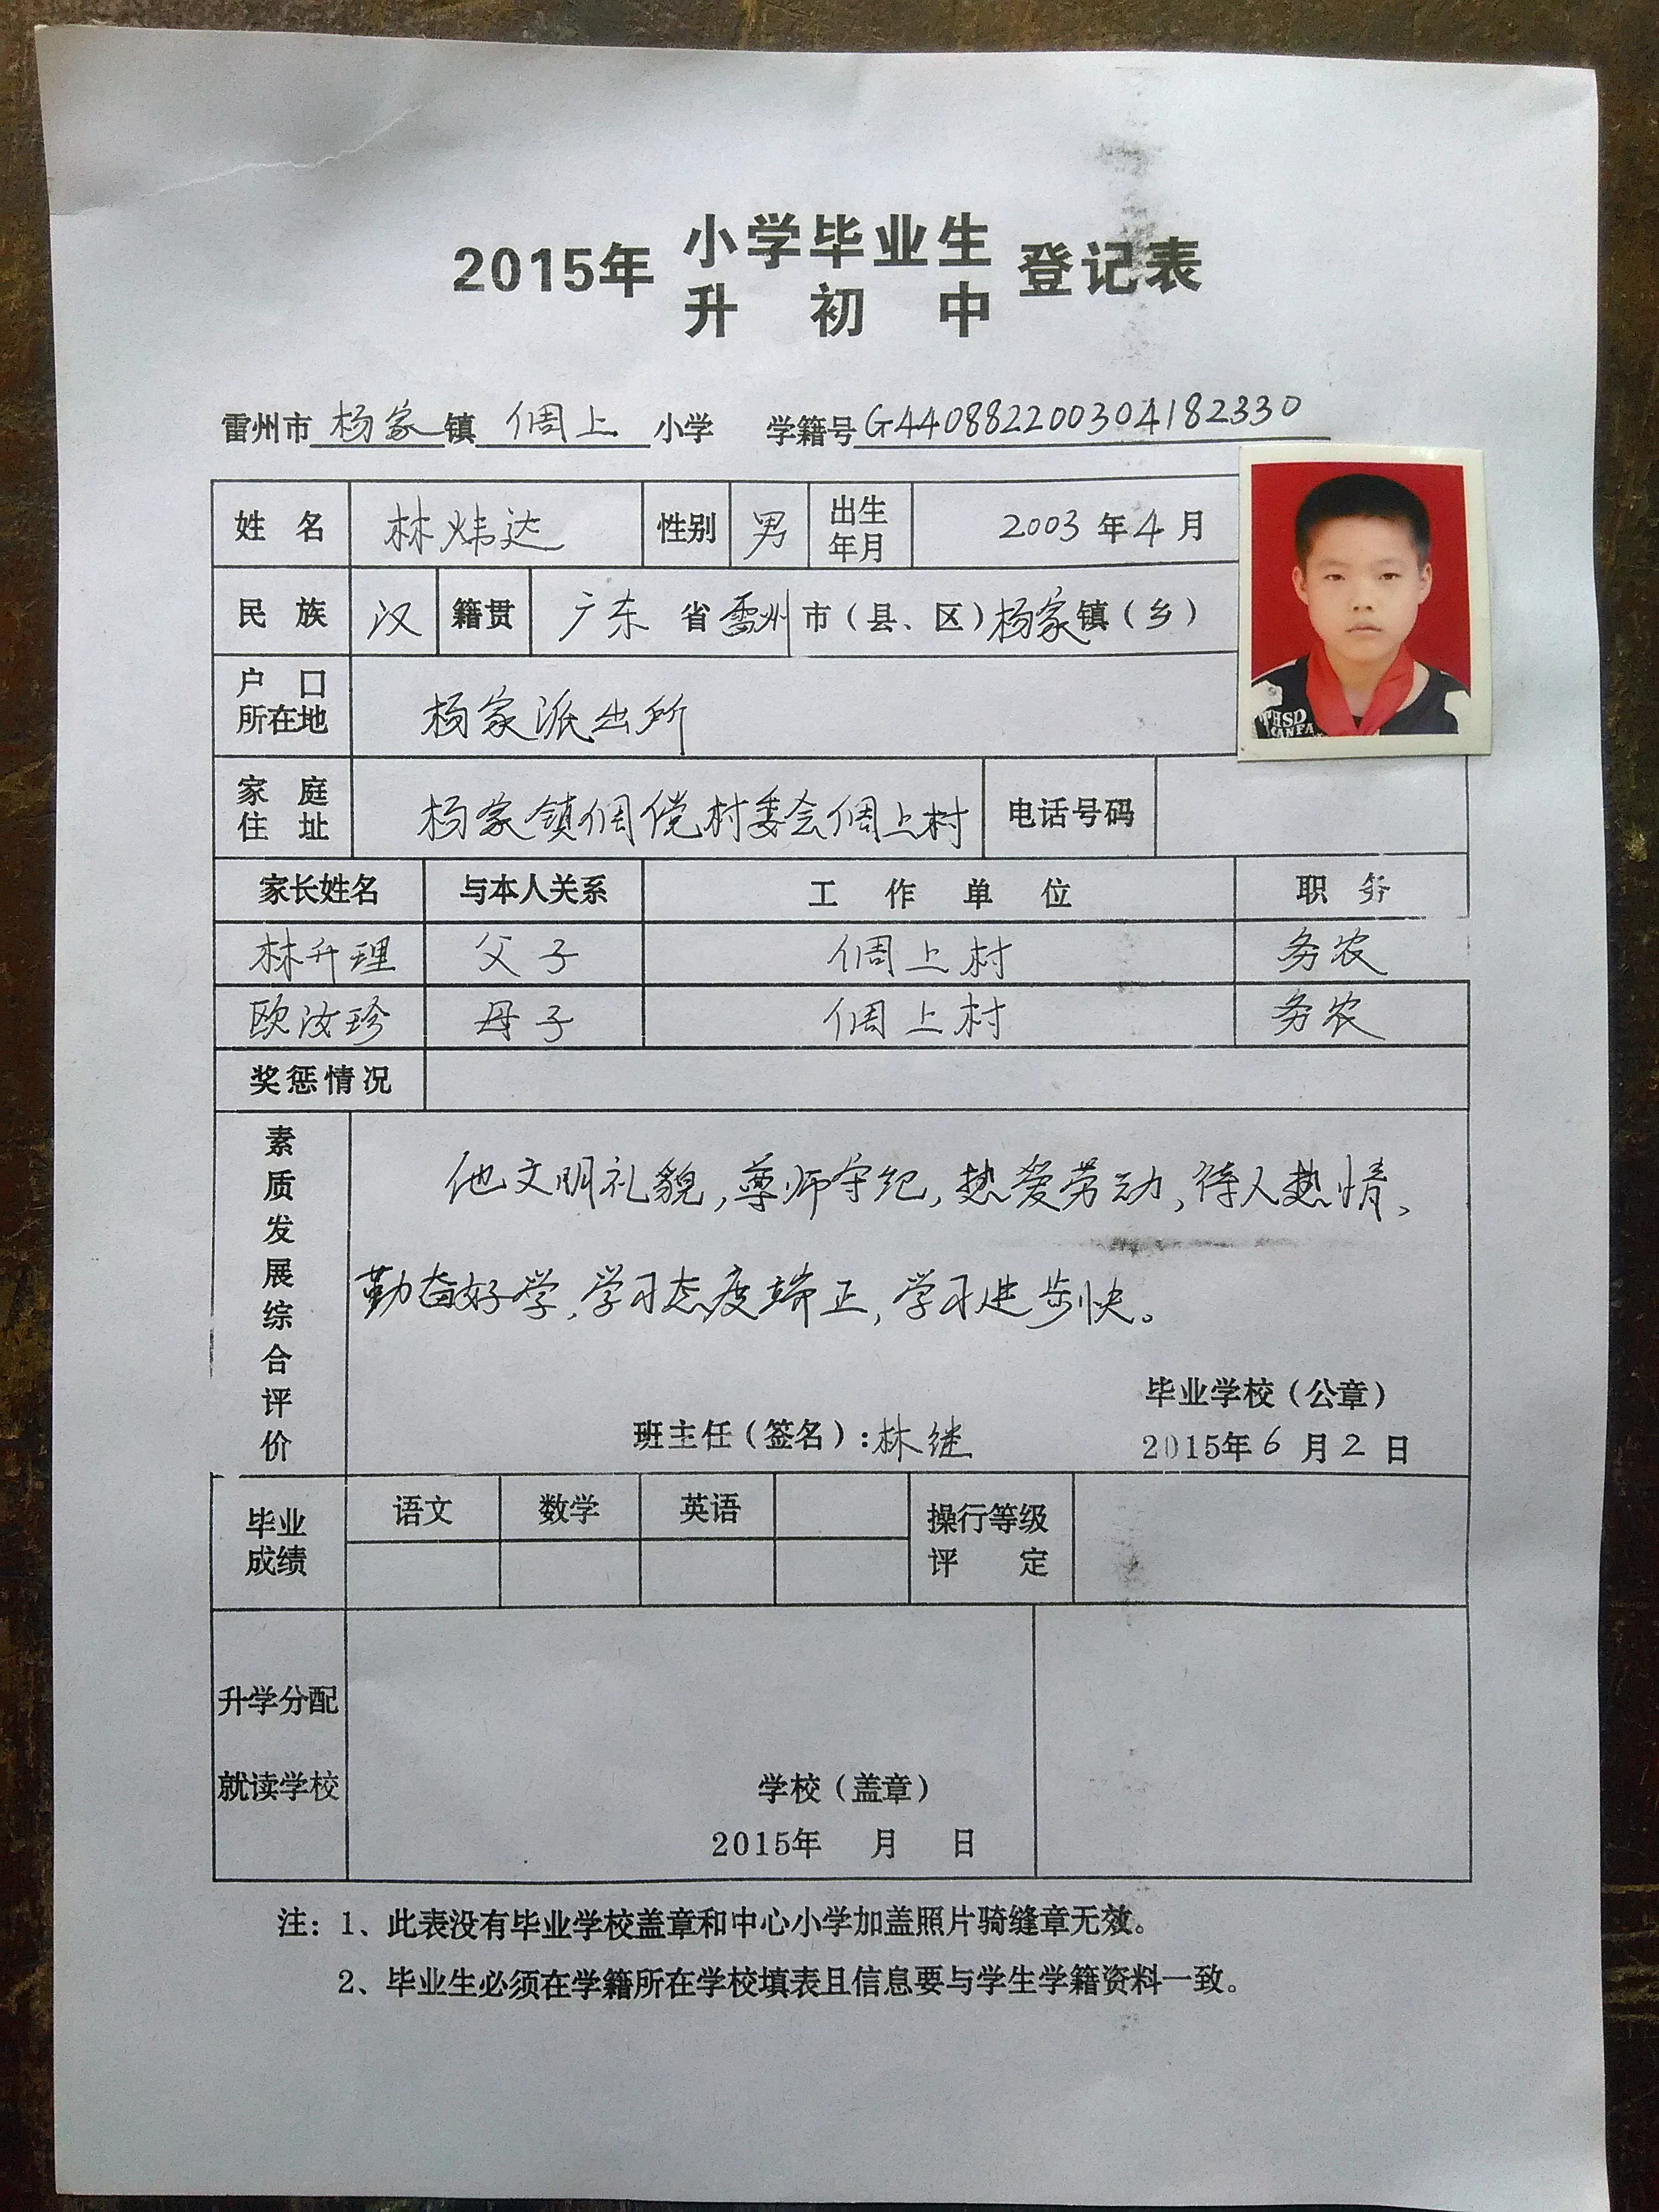 2015年 小学毕业生 登记表
升初中
雷州市杨家镇倜上小学 学籍号G440882200304182330
姓名 林炜达 性别 男 出生年月 2003年4月
民族 汉 籍贯 广东省雷州市(县、区)杨家镇(乡)
户口所在地 杨家派出所
家庭住址 杨家镇倜傥村委会倜上村 电话号码
家长姓名 与本人关系 工作单位 职务
林升理 父子 倜上村 务农
欧汝珍 母子 倜上村 务农
奖惩情况
素质发展综合评价
他文明礼貌,尊师守纪,热爱劳动,待人热情、
勤奋好学,学习态度端正,学习进步快。
毕业学校(公章)
班主任(签名):林继 2015年6月2日
毕业成绩 语文 数学 英语 操行等级评定
升学分配
就读学校 学校(盖章)
2015年 月 日
注:1、此表没有毕业学校盖章和中心小学加盖照片骑缝章无效。
2、毕业生必须在学籍所在学校填表且信息要与学生学籍资料一致。